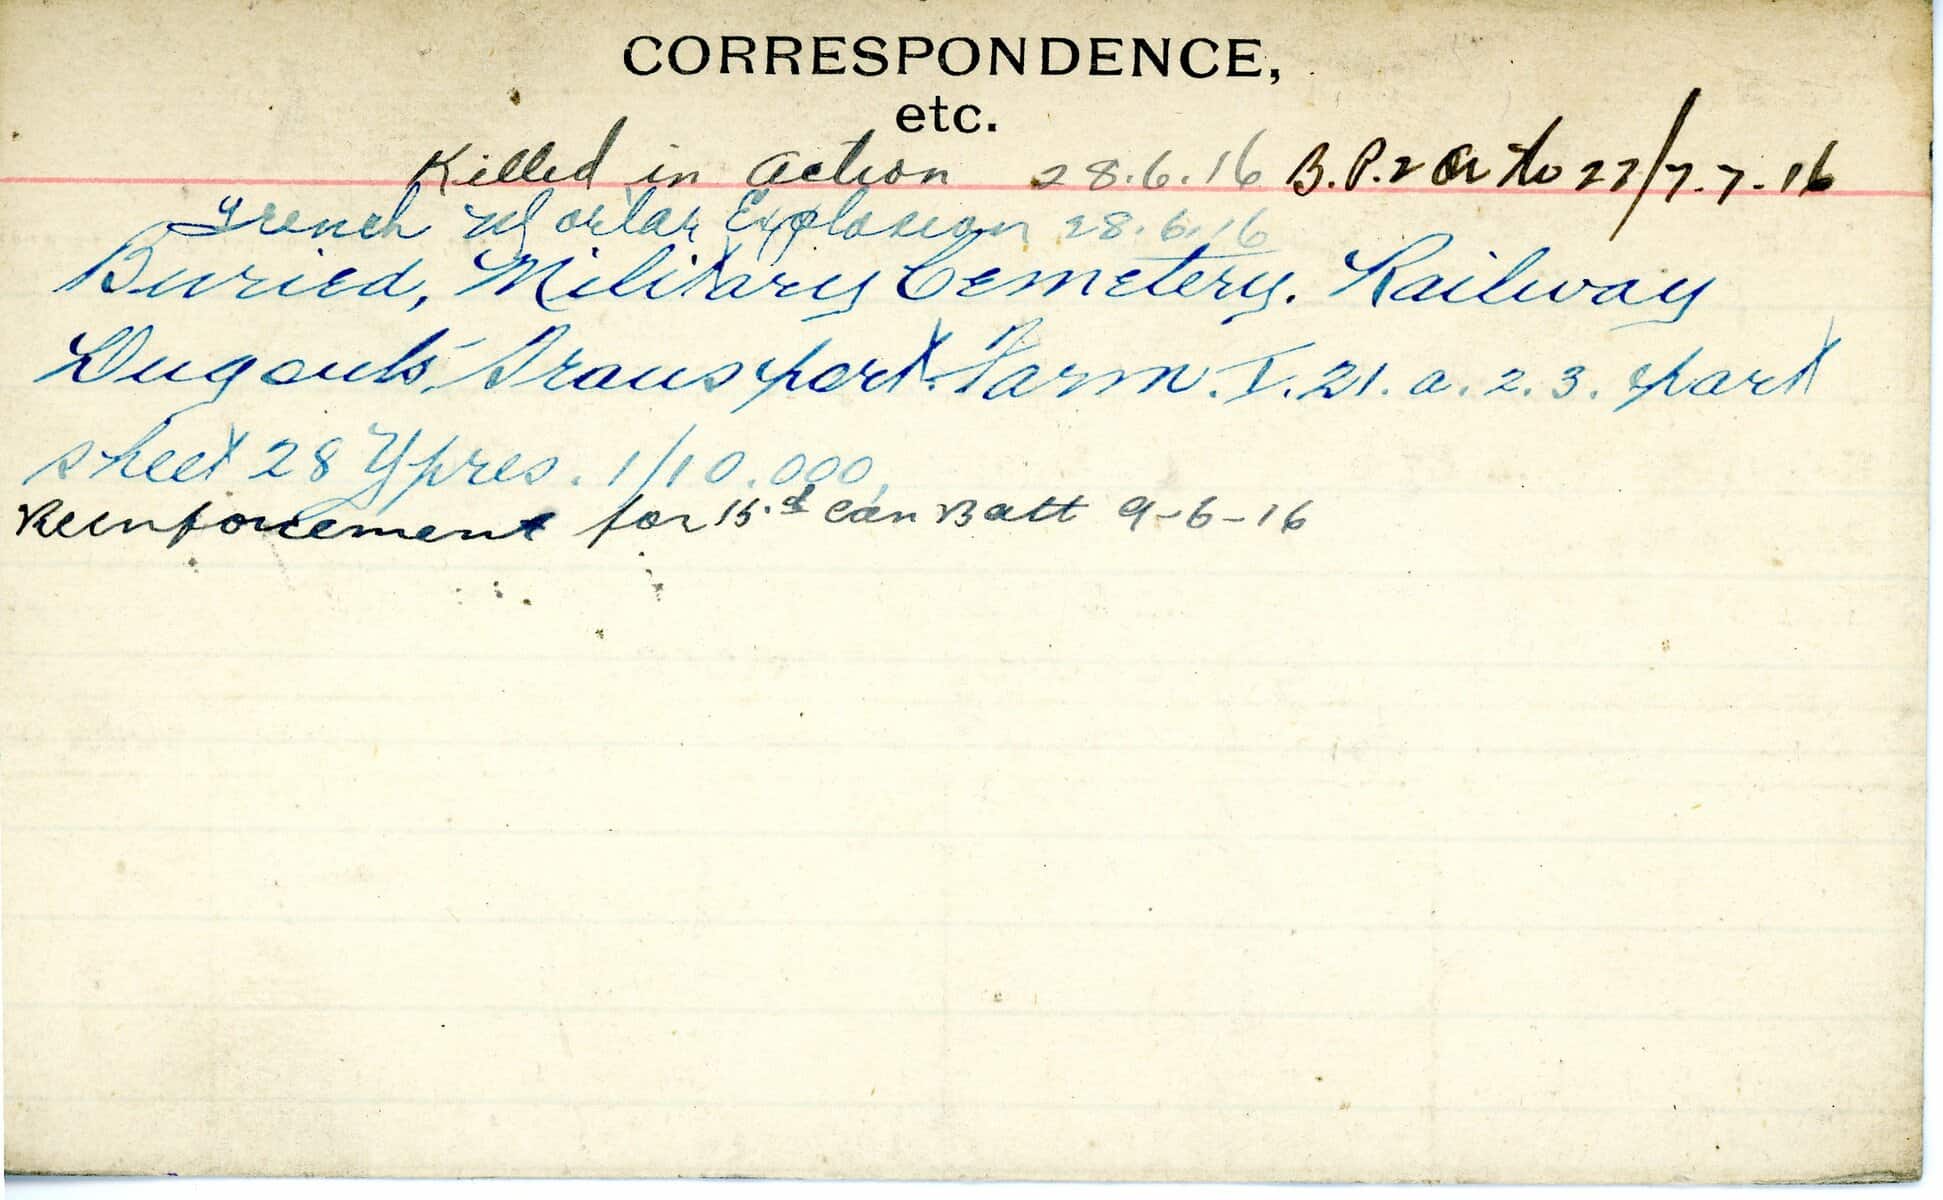 CORRESPONDENCE,
etc.
Killed in action 28.6.16 B.P.2 Or No 27/7.7.16
Trench Mortar Explosion 28.6.16
Buried, Military Cemetery. Railway
Dugouts, Transport. Farm. I. 21. a. 2. 3. part
sheet 28 Ypres. 1/10.000.
Reinforcement for Can Batt 9-6-16